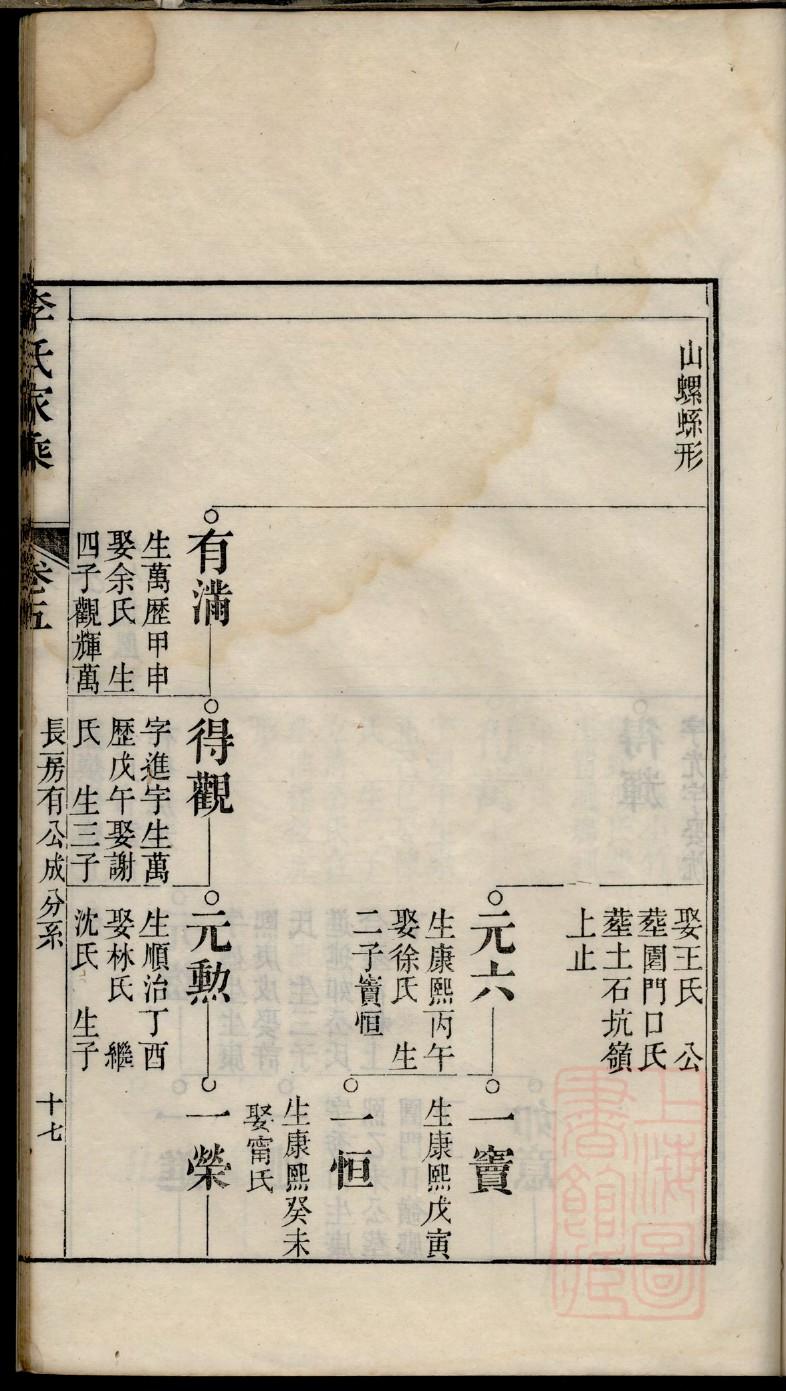 山螺蛛形
有滿
生萬歷甲申
娶余氏 生
四子觀輝萬
得觀
字進宇生萬
歷戊午娶謝
氏 生三子
娶王氏 公
塟圍門口氏
塟土石坑嶺
上止
元六
生康熙丙午
娶徐氏 生
二子竇恒
元勲
生順治丁酉
娶林氏 繼
沈氏 生子
一竇
生康熙戊寅
一恒
生康熙癸未
娶甯氏
一榮
李氏家乘
卷五
長房有公成分系
十七
上海圖
書館藏